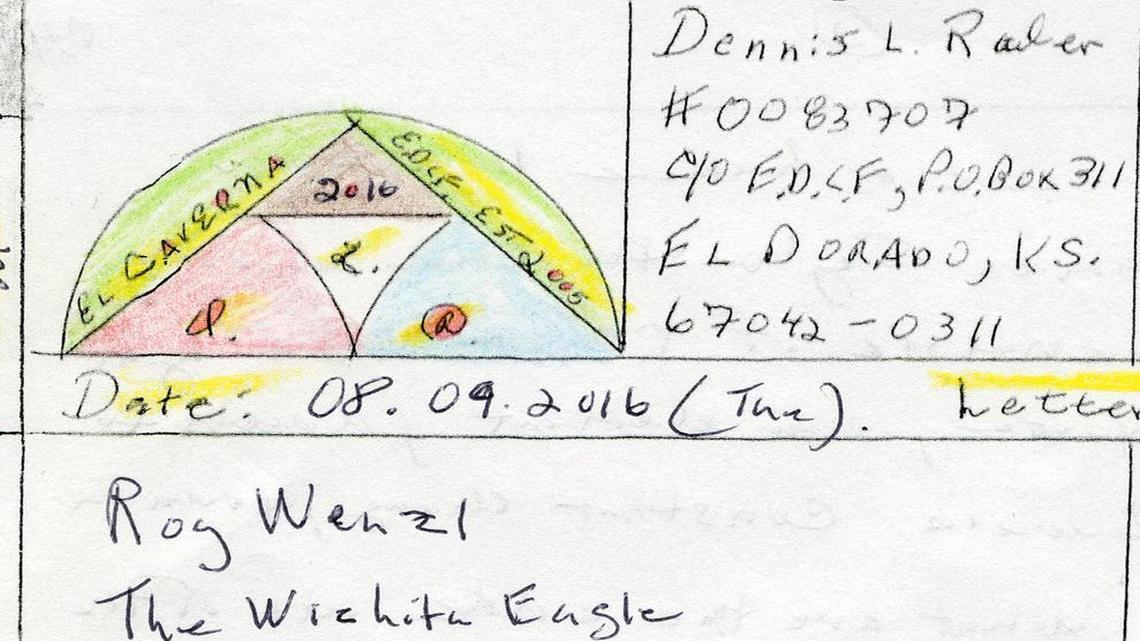 Dennis L. Rader
# 0083707
C/O E.D.C.F., P.O. Box 311
EL DORADO, KS.
67042-0311
EL CAVERNA
E.D.C.F. EST 2005
2016
L.
R
Date: 08.09.2016 (Tue). Letter
Roy Wenzl
The Wichita Eagle